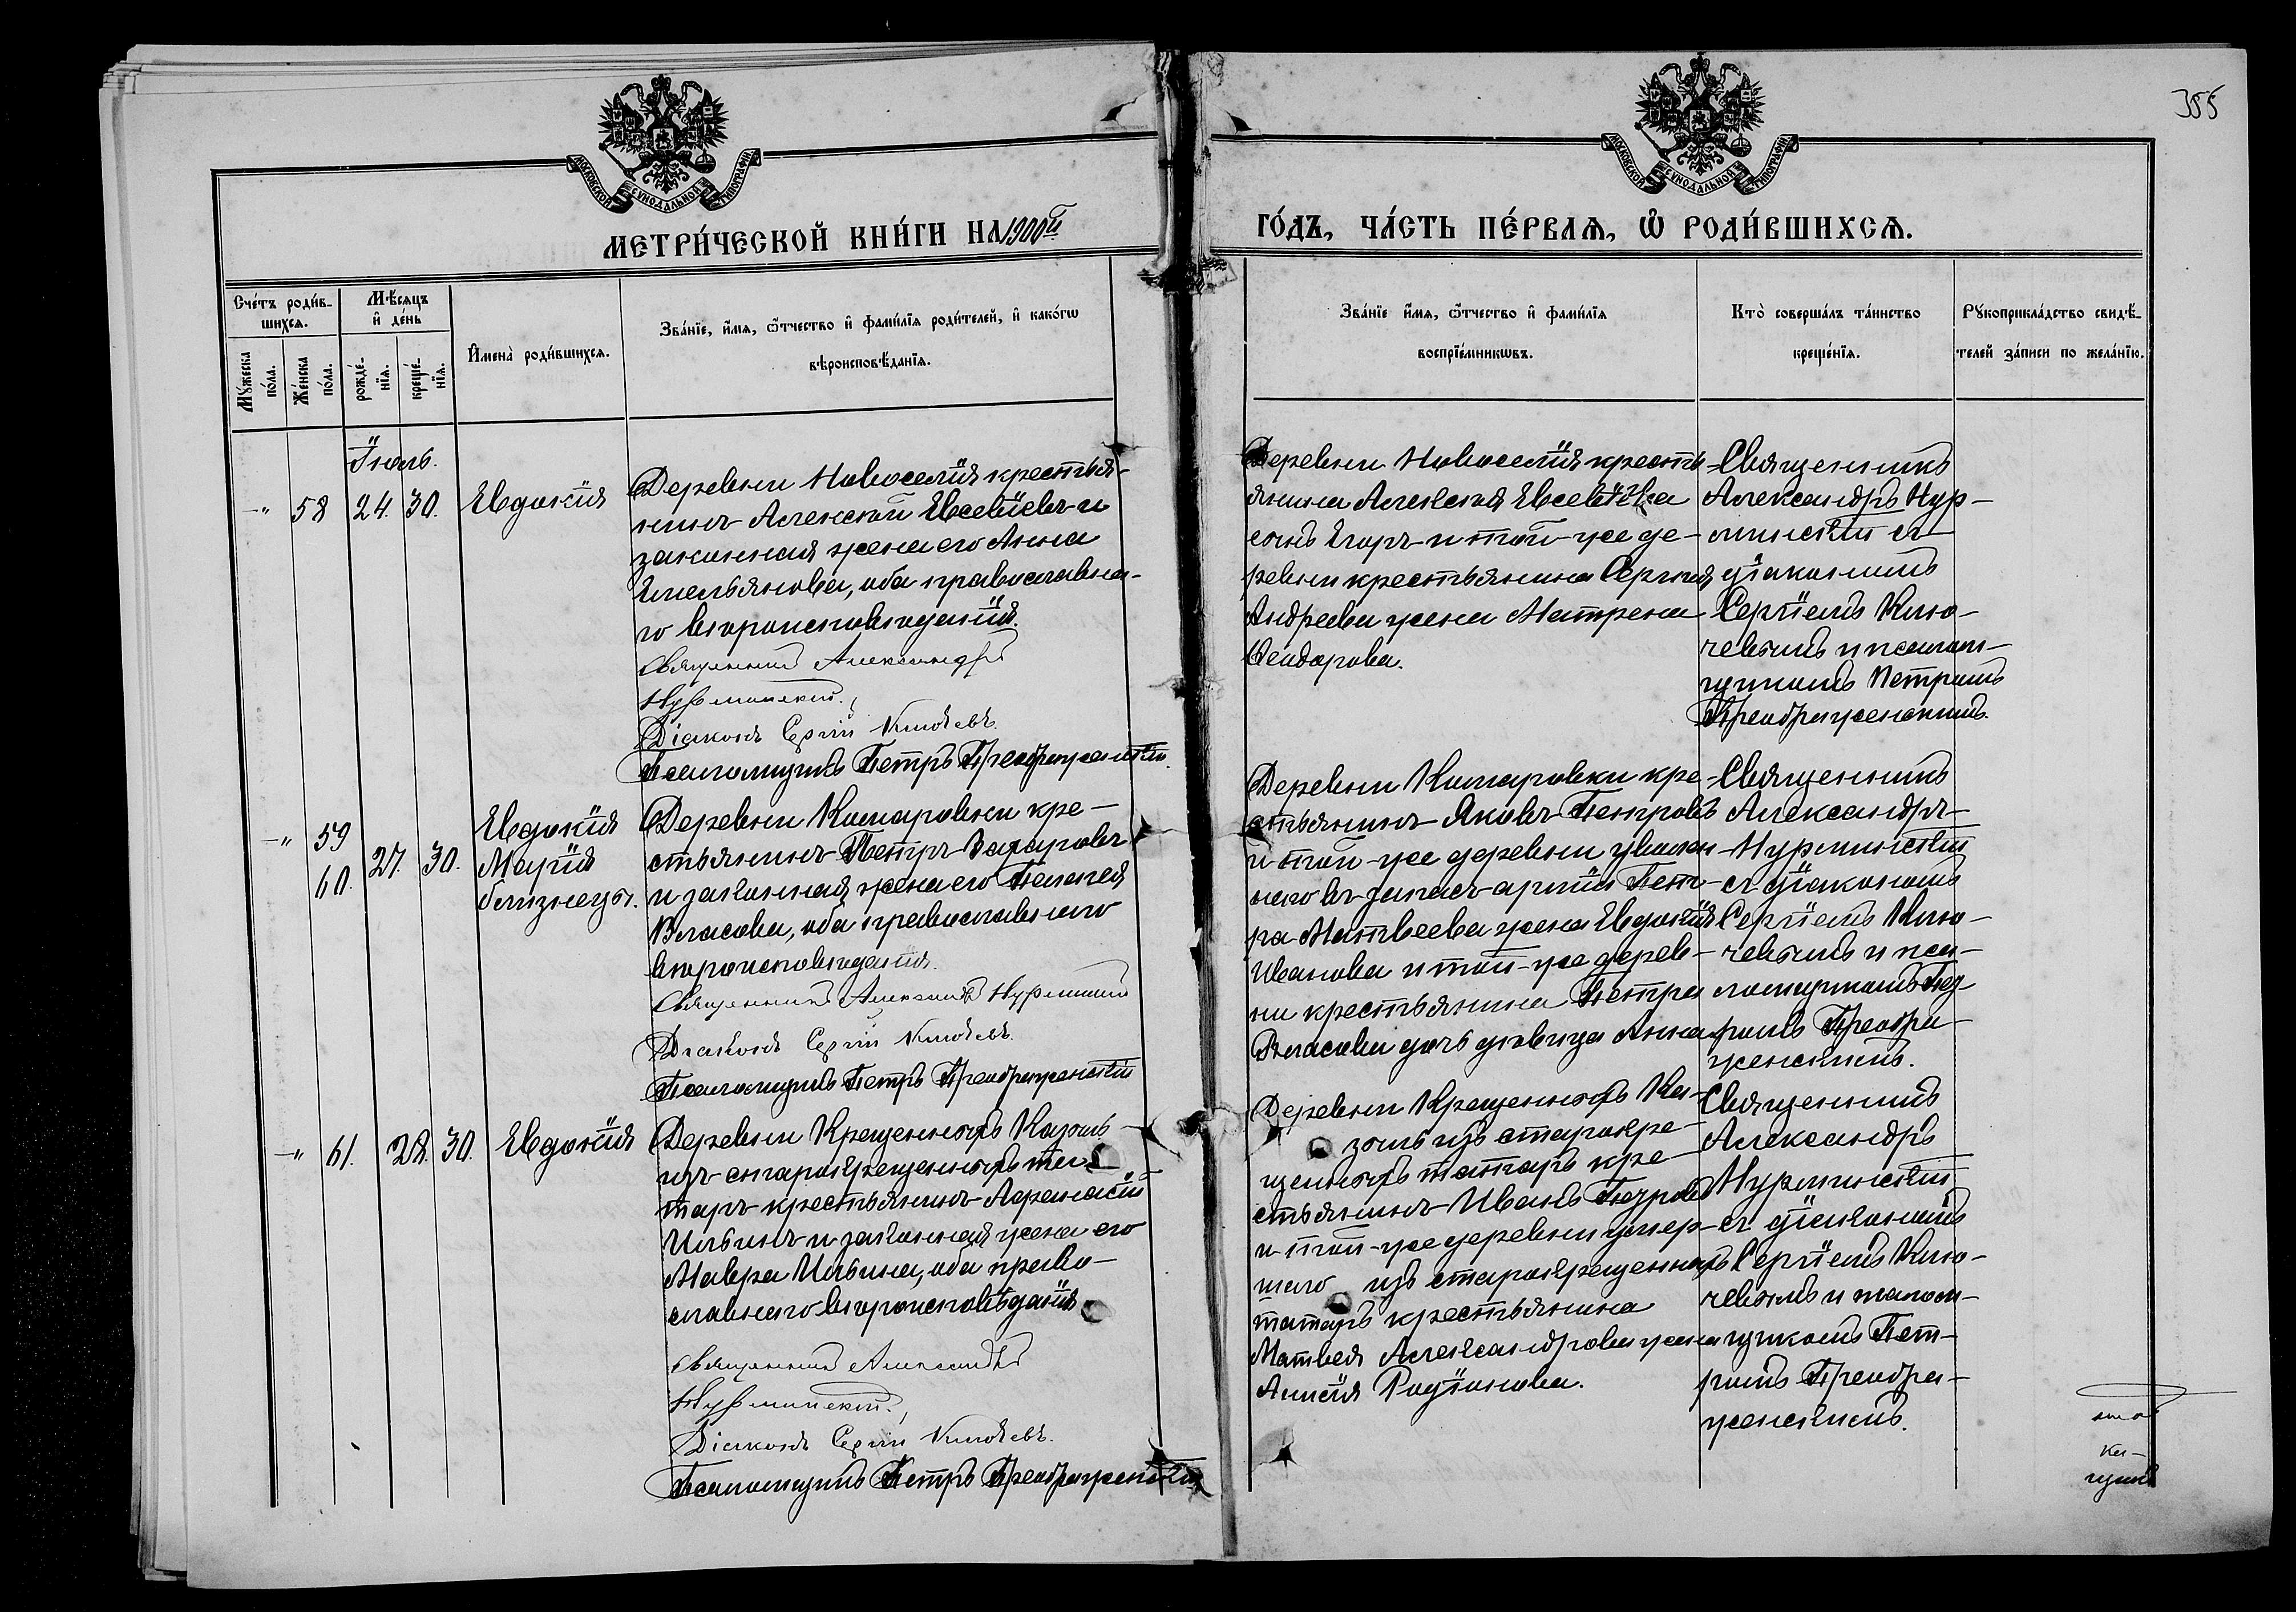 355
МОСКОВСКОЙ СѴНОДАЛЬНОЙ ТИПОГРАФІИ
МОСКОВСКОЙ СѴНОДАЛЬНОЙ ТИПОГРАФІИ
МЕТРИ́ЧЕСКОЙ КНИ́ГИ НА 1900й
ГО́ДЪ, ЧА́СТЬ ПЕ́РВАѦ, Ѿ РОДИ́ВШИХСѦ.
Сче́тъ роди́в-
шихсѧ.
Мꙋ́жеска по́ла.
Же́нска по́ла.
Мѣ́сѧцъ
и҆ де́нь
рожде́-
нїѧ.
креще́-
нїѧ.
И҆мена̀ роди́вшихсѧ.
Зва́нїе, и҆́мѧ, ѻ҆́тчество и҆ фами́лїѧ роди́телей, и҆ како́гѡ
вѣроисповѣ́данїѧ.
Зва́нїе и҆́мѧ, ѻ҆́тчество и҆ фами́лїѧ
воспрїе́мникѡвъ.
Кто̀ соверша́лъ та́инство
креще́нїѧ.
Рꙋкоприкла́дство свидѣ́-
телей за́писи по жела́нїю.
Іюль.
-" 58 24. 30. Евдокія
Деревни Новоселія крестья-
нинъ Алексѣй Евсевіевъ и
законная жена его Анна
Емельянова, оба православна-
го вѣроисповѣданія.
Священникъ Александръ
Нурминскій.
Діаконъ Сергій Ключевъ.
Псаломщикъ Петръ Преображенскій.
Деревни Новоселія кресть-
янина Алексѣя Евсевіева
сынъ Егоръ и той-же де-
ревни крестьянина Сергія
Андреева жена Матрена
Ѳеодорова.
Священникъ
Александръ Нур-
минскій съ
діакономъ
Сергіемъ Клю-
чевымъ и псалом-
щикомъ Петромъ
Преображенскимъ.
-" 59
60. 27. 30. Евдокія
Марія
близнецы.
Деревни Комаровки кре-
стьянинъ Петръ Захаровъ
и законная жена его Пелагея
Власова, оба православнаго
вѣроисповѣданія.
Священникъ Александръ Нурминскій
Діаконъ Сергій Ключевъ.
Псаломщикъ Петръ Преображенскій
Деревни Комаровки кре-
стьянинъ Яковъ Петровъ
и той-же деревни уволен-
наго въ запасъ арміи Пет-
ра Матвеева жена Евдокія
Иванова и той-же дерев-
ни крестьянина Петра
Власова дочь дѣвица Анна
Священникъ
Александръ
Нурминскій
съ діакономъ
Сергіемъ Клю-
чевымъ и пса-
ломщикомъ Пет-
ромъ Преобра-
женскимъ.
-" 61. 28. 30. Евдокія
Деревни Крещенныхъ Казыль
изъ старокрещенныхъ та-
таръ крестьянинъ Аѳанасій
Ильинъ и законная жена его
Мавра Ильина, оба право-
славнаго вѣроисповѣданія
Священникъ Александръ
Нурминскій.
Діаконъ Сергій Ключевъ.
Псаломщикъ Петръ Преображенскій
Деревни Крещенныхъ Ка-
изъ старокре-
щенныхъ татаръ кре-
стьянинъ Иванъ Петровъ
и той-же деревни умер-
шаго изъ старокрещенныхъ
татаръ крестьянина
Матвея Александрова жена
Анисія Родіонова.
Священникъ
Александръ
Нурминскій
съ діакономъ
Сергіемъ Клю-
чевымъ и псалом-
щикомъ Пет-
ромъ Преобра-
женскимъ.